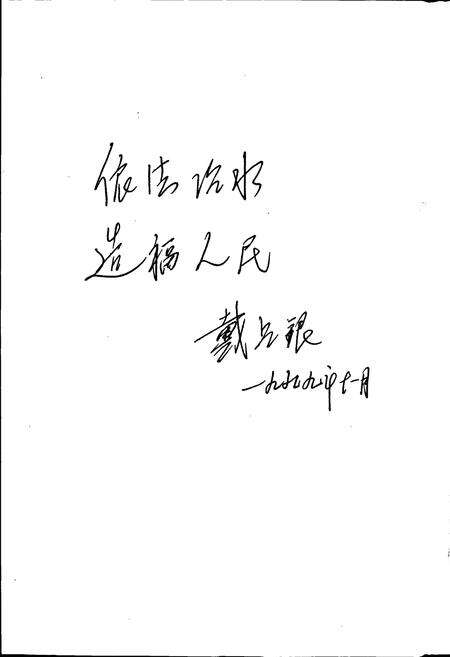 依法治水
造福人民
戴占银
一九九九年十一月